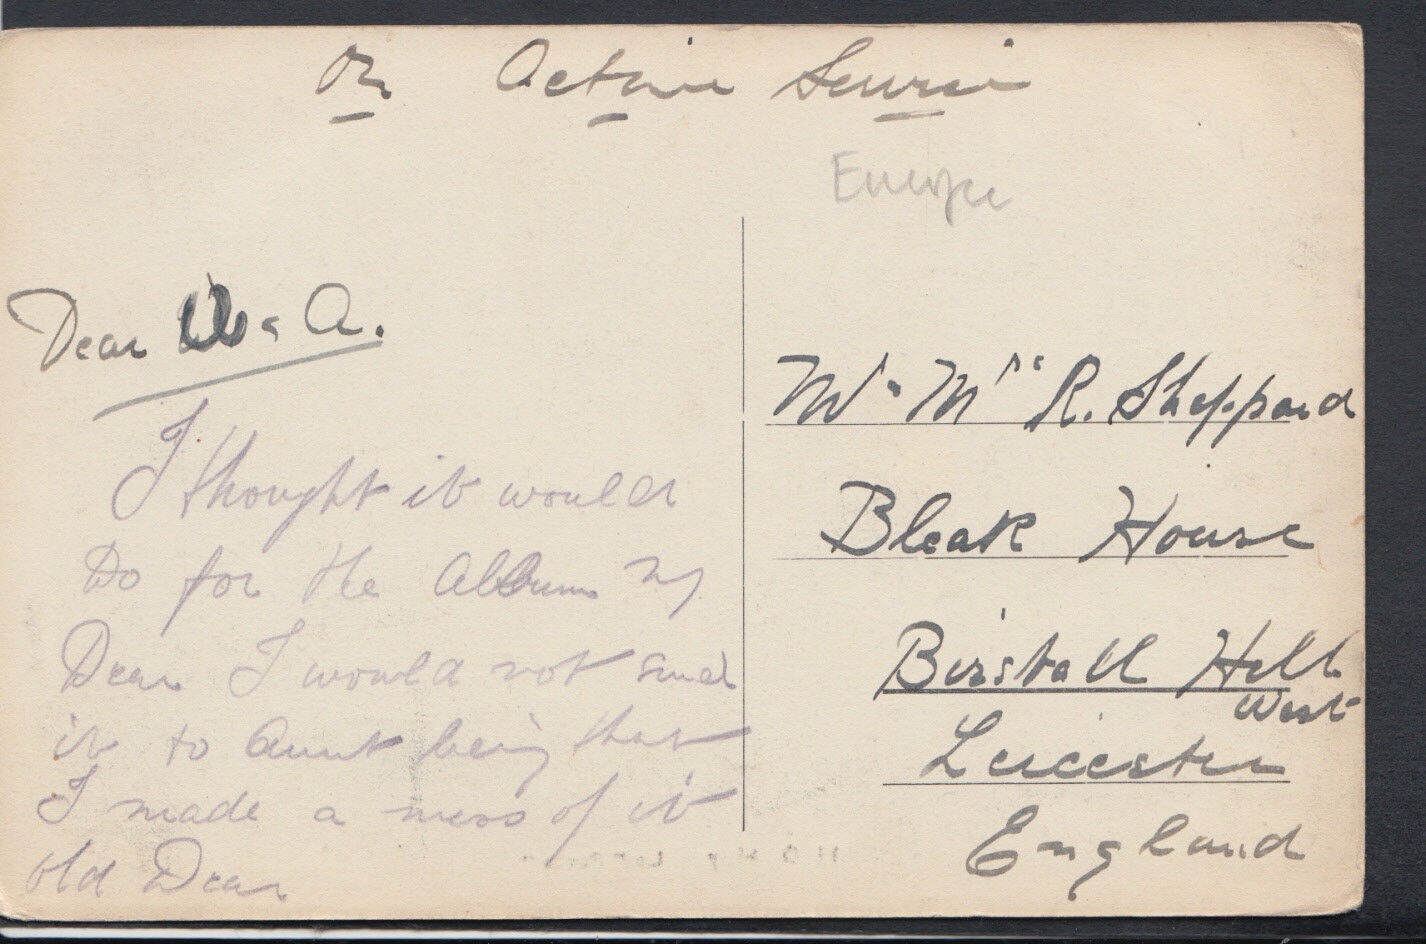 On Active Service
Europe
Dear U & A.
I thought it would
Do for the Album my
Dear I would not send
it to Aunt being that
I made a mess of it
old Dear
Mr & Mrs R. Sheppard
Bleak House
Birstall Hill
West
Leicester
England